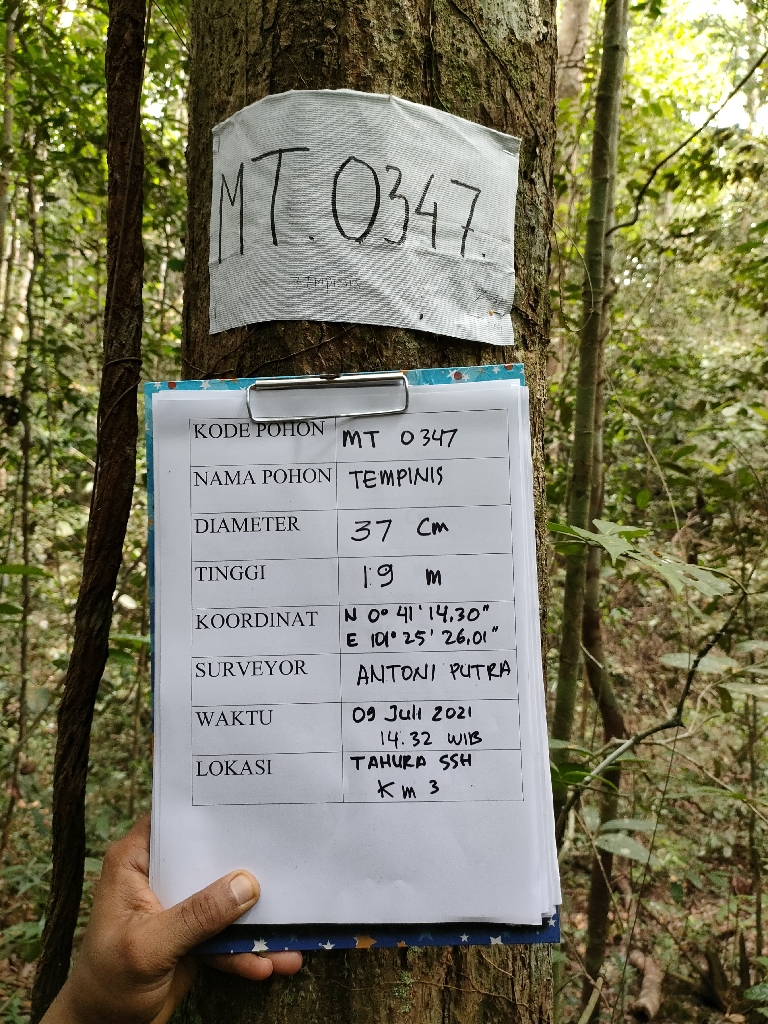 MT. 0347.
KODE POHON MT 0347
NAMA POHON TEMPINIS
DIAMETER 37 Cm
TINGGI 19 m
KOORDINAT N 0° 41' 14.30"
E 101° 25' 26.01"
SURVEYOR ANTONI PUTRA
WAKTU 09 Juli 2021
14.32 WIB
LOKASI TAHURA SSH
Km 3